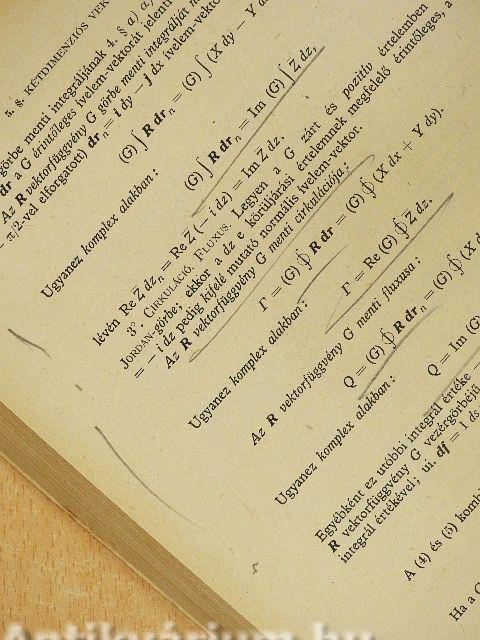 5. §. KÉTDIMENZIÓS VEK
görbe menti integráljának 4. § a)
dr a G érintőleges ívelem-vektorát jelenti
Az R vektorfüggvény G görbe menti integrálját
— π/2-vel elforgatott) drₙ = i dy — j dx ívelem-vekto
(G) ∫ R drₙ = (G) ∫ (X dy — Y d
Ugyanez komplex alakban:
(G) ∫ R drₙ = Im (G) ∫ Z̄ dz,
lévén Re Z̄ dzₙ = Re Z̄ (— i dz) = Im Z̄ dz.
3°. CIRKULÁCIÓ. FLUXUS. Legyen a G zárt és pozitív értelemben
JORDAN-görbe; ekkor a dz e körüljárási értelemnek megfelelő érintőleges, a
= — i dz pedig kifelé mutató normális ívelem-vektor.
Az R vektorfüggvény G menti cirkulációja:
Γ = (G) ∮ R dr = (G) ∮ (X dx + Y dy).
Ugyanez komplex alakban:
Γ = Re (G) ∮ Z̄ dz.
Az R vektorfüggvény G menti fluxusa:
Q = (G) ∮ R drₙ = (G) ∮ (X
Ugyanez komplex alakban:
Q = Im (G)
Egyébként ez utóbbi integrál értéke
R vektorfüggvény G vezérgörbéjű
integrál értékével; ui. df = 1 ds
A (4) és (5) komb
Ha a G
Antikvárium.hu